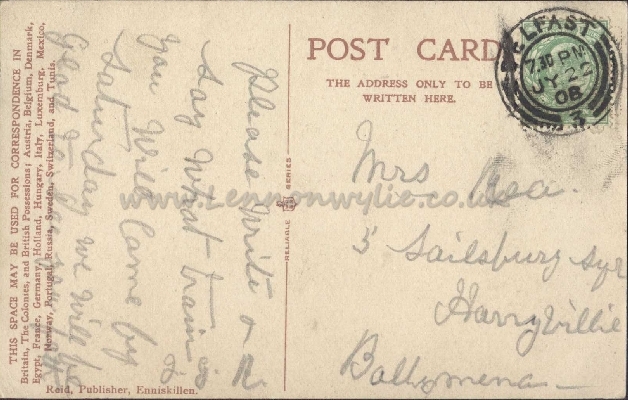 THIS SPACE MAY BE USED FOR CORRESPONDENCE IN
Britain, The Colonies, and British Possessions; Austria, Belgium, Denmark,
Egypt, France, Germany, Holland, Hungary, Italy, Luxemburg, Mexico,
Norway, Portugal, Russia, Sweden, Switzerland, and Tunis.
Please Write &
say What train is
you Will Came by
Saturday we Will be
Glad to see you
Reid, Publisher, Enniskillen.
RELIABLE SERIES
POST CARD
THE ADDRESS ONLY TO BE
WRITTEN HERE.
BELFAST
7.30 PM
JY 22
08
3
Mrs Rea.
5 Sailsburg Sqr
Harryville
Ballymena
www.Lennonwylie.co.uk